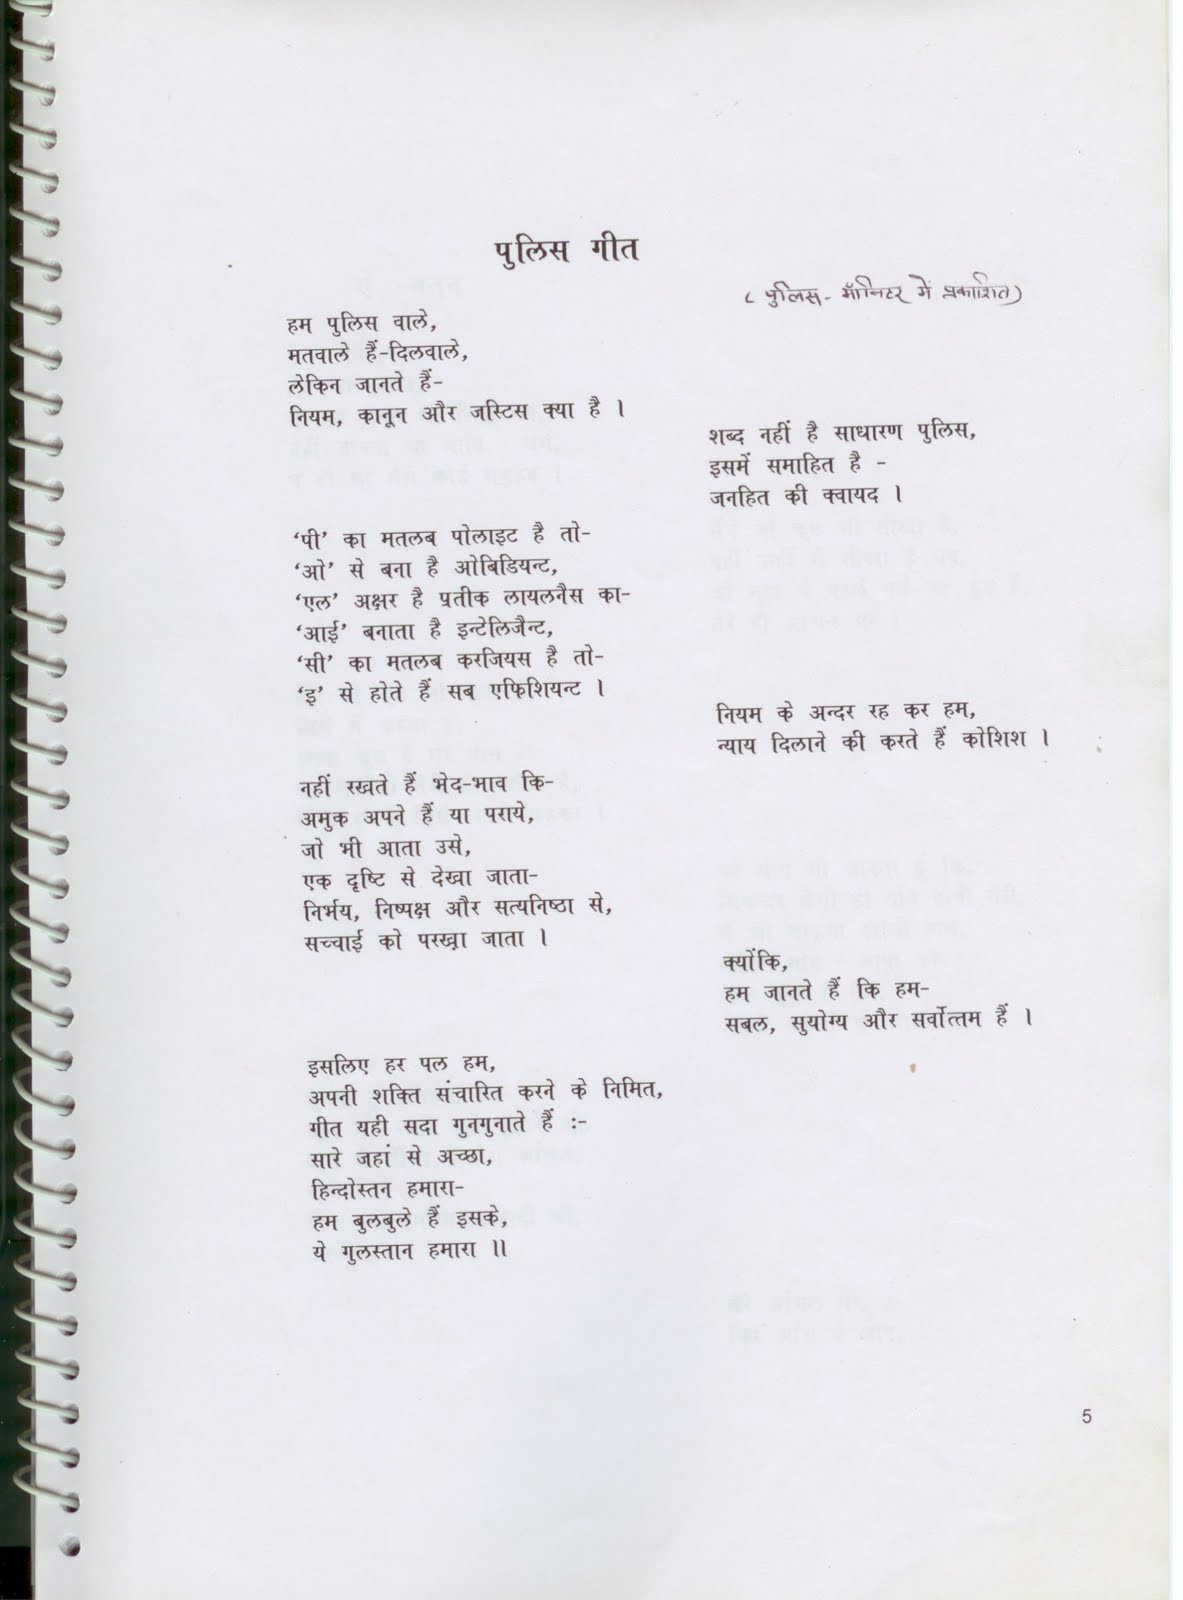 पुलिस गीत
( पुलिस- मॉनिटर में प्रकाशित)
हम पुलिस वाले,
मतवाले हैं-दिलवाले,
लेकिन जानते हैं-
नियम, कानून और जस्टिस क्या है ।
शब्द नहीं है साधारण पुलिस,
इसमें समाहित है -
जनहित की क्वायद ।
‘पी’ का मतलब पोलाइट है तो-
‘ओ’ से बना है ओबिडियन्ट,
‘एल’ अक्षर है प्रतीक लायलनैस का-
‘आई’ बनाता है इन्टेलिजैन्ट,
‘सी’ का मतलब करजियस है तो-
‘इ’ से होते हैं सब एफिशियन्ट ।
नियम के अन्दर रह कर हम,
न्याय दिलाने की करते हैं कोशिश ।
नहीं रखते हैं भेद-भाव कि-
अमुक अपने हैं या पराये,
जो भी आता उसे,
एक दृष्टि से देखा जाता-
निर्भय, निष्पक्ष और सत्यनिष्ठा से,
सच्चाई को परखा जाता ।
क्योंकि,
हम जानते हैं कि हम-
सबल, सुयोग्य और सर्वोत्तम हैं ।
इसलिए हर पल हम,
अपनी शक्ति संचारित करने के निमित,
गीत यही सदा गुनगुनाते हैं :-
सारे जहां से अच्छा,
हिन्दोस्तन हमारा-
हम बुलबुले हैं इसके,
ये गुलस्तान हमारा ।।
5